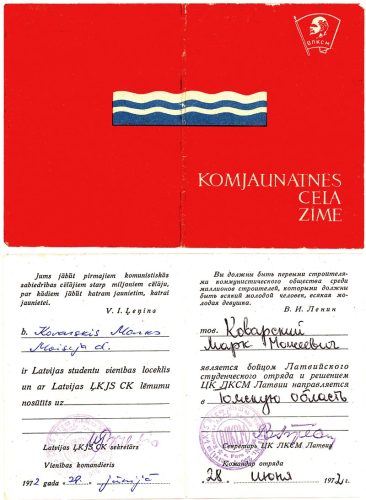 ВЛКСМ
KOMJAUNATNES
CEĻA
ZĪME
Jums jābūt pirmajiem komunistiskās
sabiedrības cēlājiem starp miljoniem cēlāju,
par kādiem jābūt katram jaunietim, katrai
jaunietei.
V. I. Ļeņins
b. Kovarskis Marks
Moiseja d.
ir Latvijas studentu vienības loceklis
un ar Latvijas ĻKJS CK lēmumu
nosūtīts uz
Latvijas ĻKJS CK sekretārs
Vienības komandieris
1972 gada 28. jūnijā
Вы должны быть первыми строителя-
ми коммунистического общества среди
миллионов строителей, которыми должны
быть всякий молодой человек, всякая мо-
лодая девушка.
В. И. Ленин
тов. Коварский
Марк Моисеевич
является бойцом Латвийского
студенческого отряда и решением
ЦК ЛКСМ Латвии направляется
в Томскую область
Секретарь ЦК ЛКСМ Латвии
Командир отряда
28 июня 1972г.